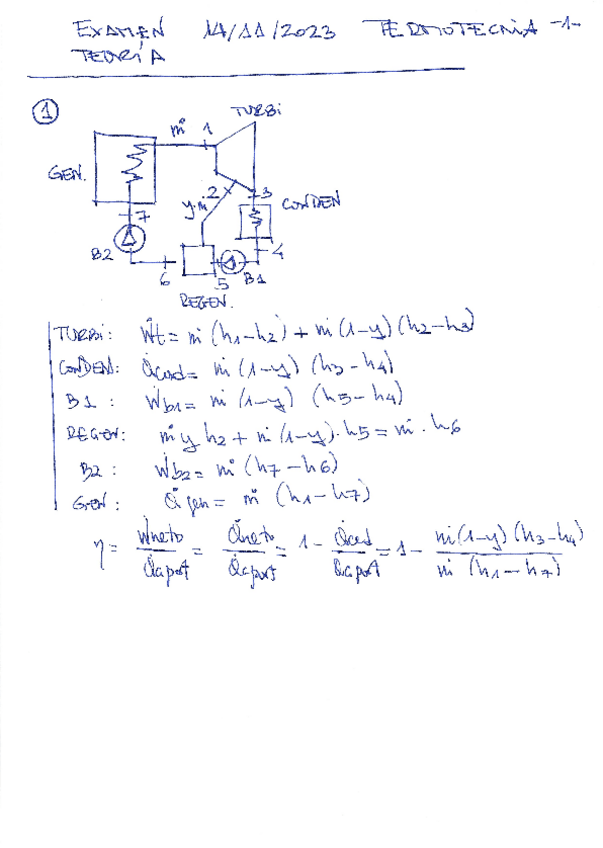 EXAMEN 14/11/2023 TERMOTECNIA -1-
TEORÍA
1
TURBi
ṁ 1
GEN.
2
3
CONDEN
y·ṁ
7
B2
4
6
5
B1
REGEN.
TURBi: Ẇt = ṁ (h1-h2) + ṁ (1-y) (h2-h3)
CONDEN: Q̇cond = ṁ (1-y) (h3-h4)
B1 : Ẇb1 = ṁ (1-y) (h5-h4)
REGEN: ṁ y h2 + ṁ (1-y)·h5 = ṁ · h6
B2 : Ẇb2 = ṁ (h7-h6)
GEN : Q̇gen = ṁ (h1-h7)
η = Ẇneto/Q̇aport = Q̇neto/Q̇aport = 1 - Q̇ced/Q̇aport = 1 - ṁ(1-y) (h3-h4)/ṁ (h1-h7)